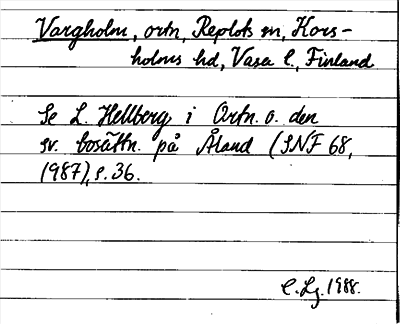 Vargholm, ortn, Replots sn, Kors-
holms hd, Vasa l., Finland
Se L. Hellberg i Ortn. o. den
sv. bosättn. på Åland (SNF 68,
1987), s. 36.
C. Lg. 1988.